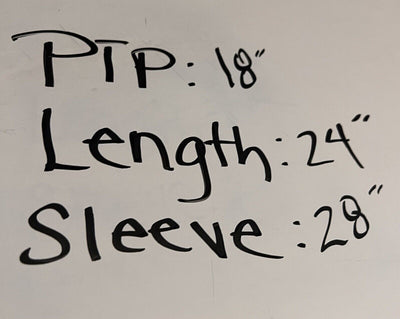 PTP: 18"
Length: 24"
Sleeve: 28"